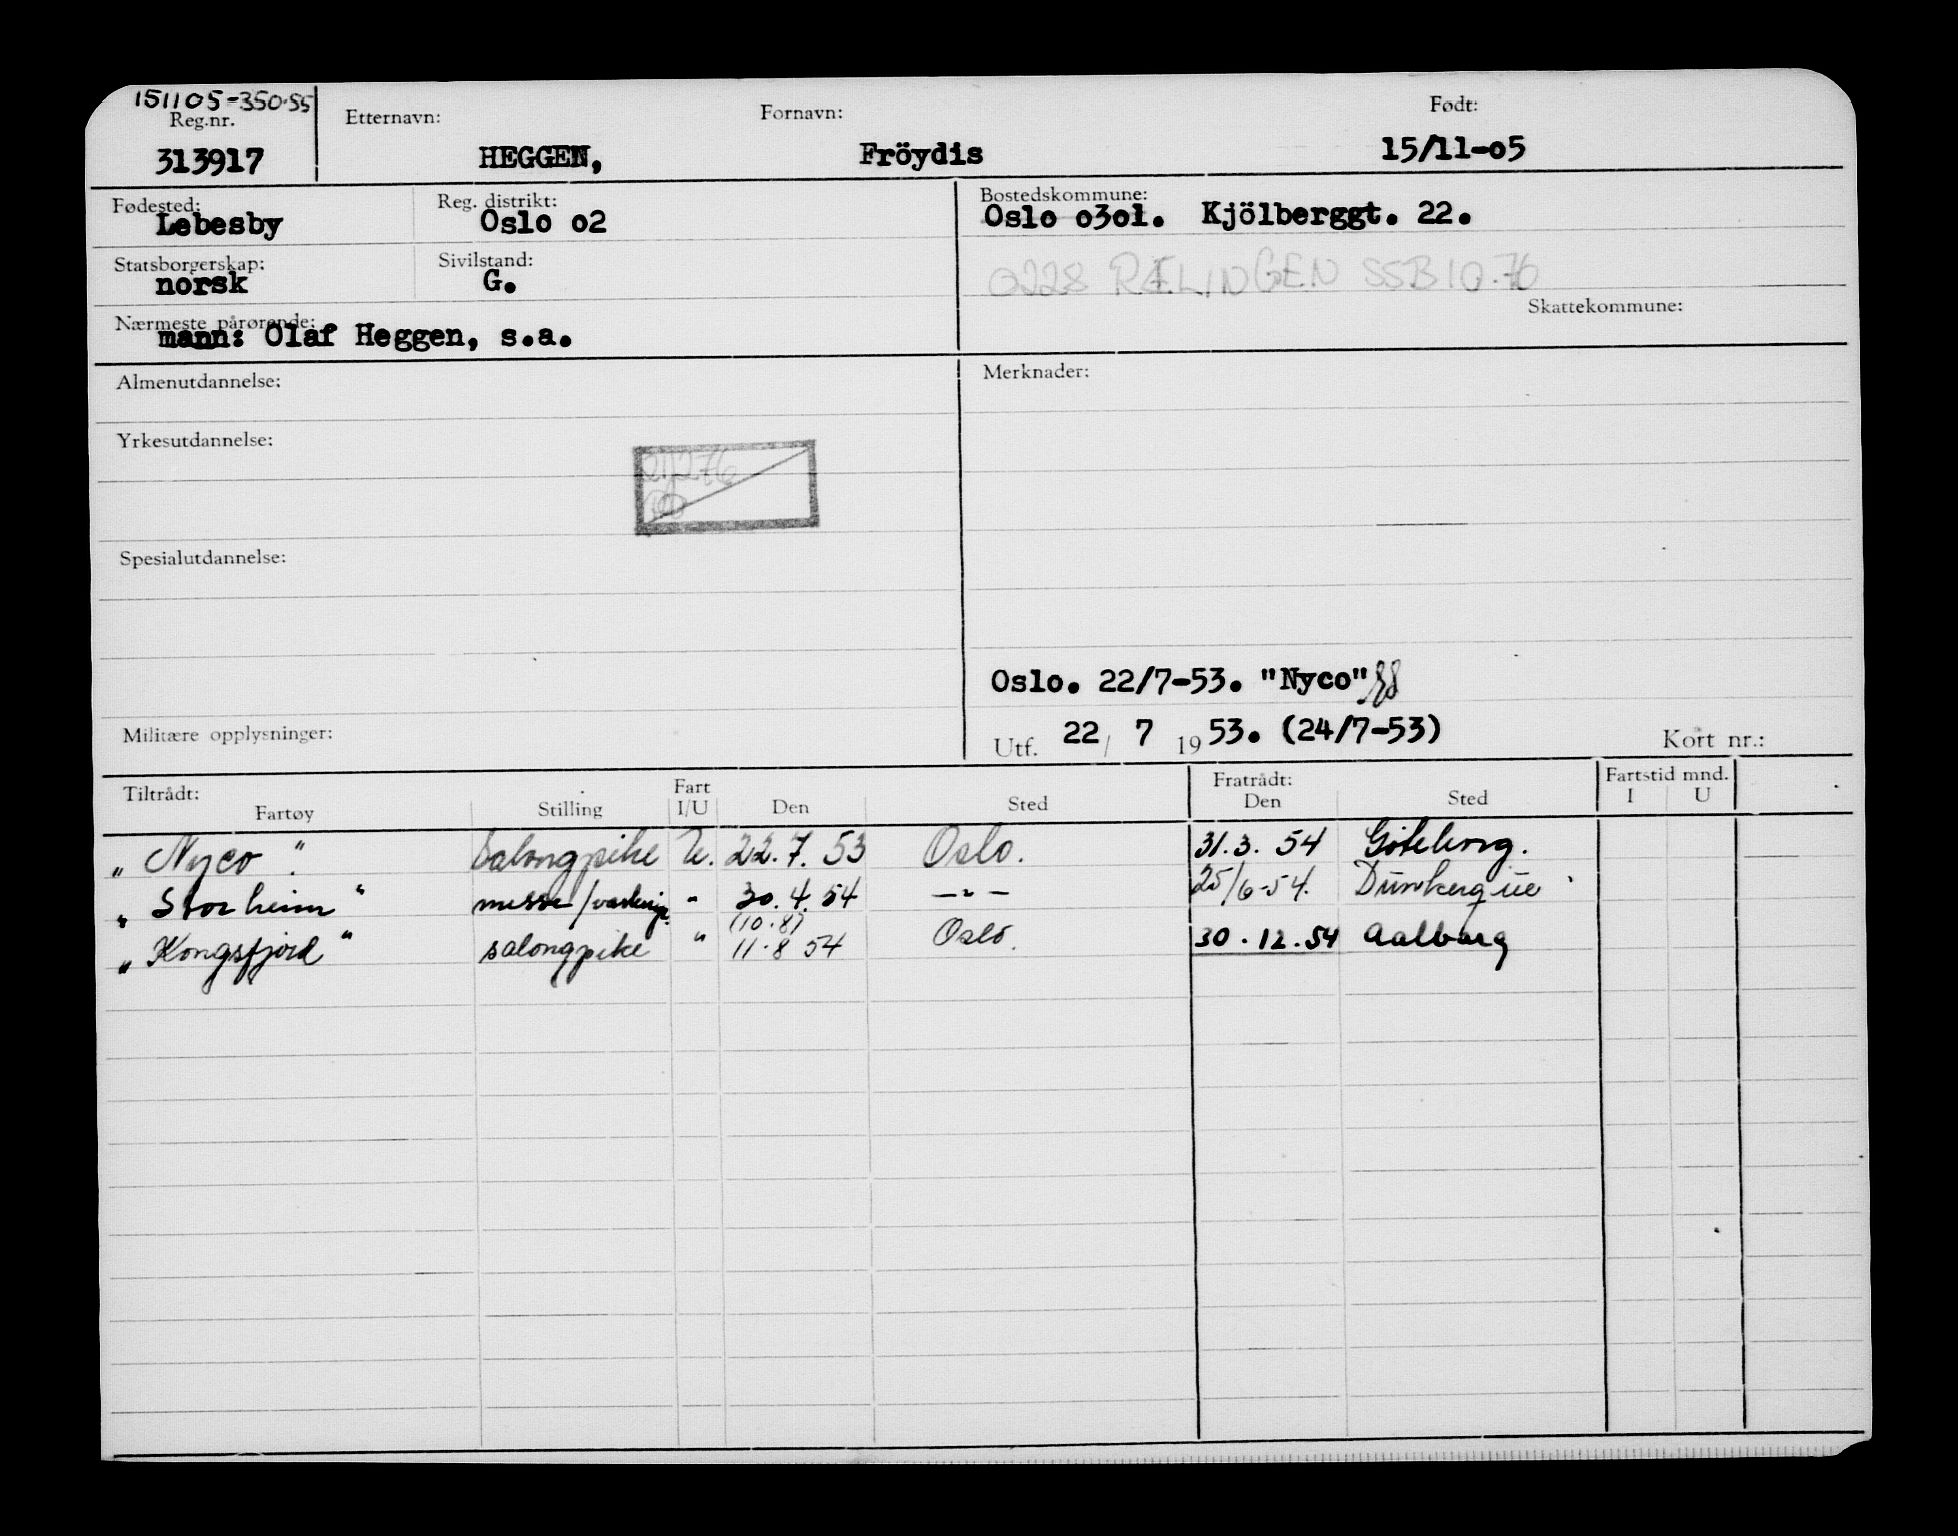 151105-350.55
Reg.nr. Etternavn: Fornavn: Født:
313917 HEGGEN, Fröydis 15/11-o5
Fødested: Reg. distrikt: Bostedskommune:
Lebesby Oslo o2 Oslo o3o1. Kjölberggt. 22.
Statsborgerskap: Sivilstand:
norsk G. 0228 RÆLINGEN SSB 10.76
Nærmeste pårørende: Skattekommune:
mann: Olaf Heggen, s.a.
Almenutdannelse: Merknader:
Yrkesutdannelse:
Spesialutdannelse:
Oslo. 22/7-53. "Nyco"
Militære opplysninger: Utf. 22/ 7 1953. (24/7-53) Kort nr.:
Tiltrådt: Fart Fratrådt: Fartstid mnd.
Fartøy Stilling I/U Den Sted Den Sted I U
"Nyco" Salongpike U. 22.7.53 Oslo. 31.3.54 Göteborg.
"Storheim" messe/ " 30.4.54 —"— 25/6-54. Dunkerque
(10.8)
"Kongsfjord" salongpike " 11.8 54 Oslo. 30.12.54 Aalborg